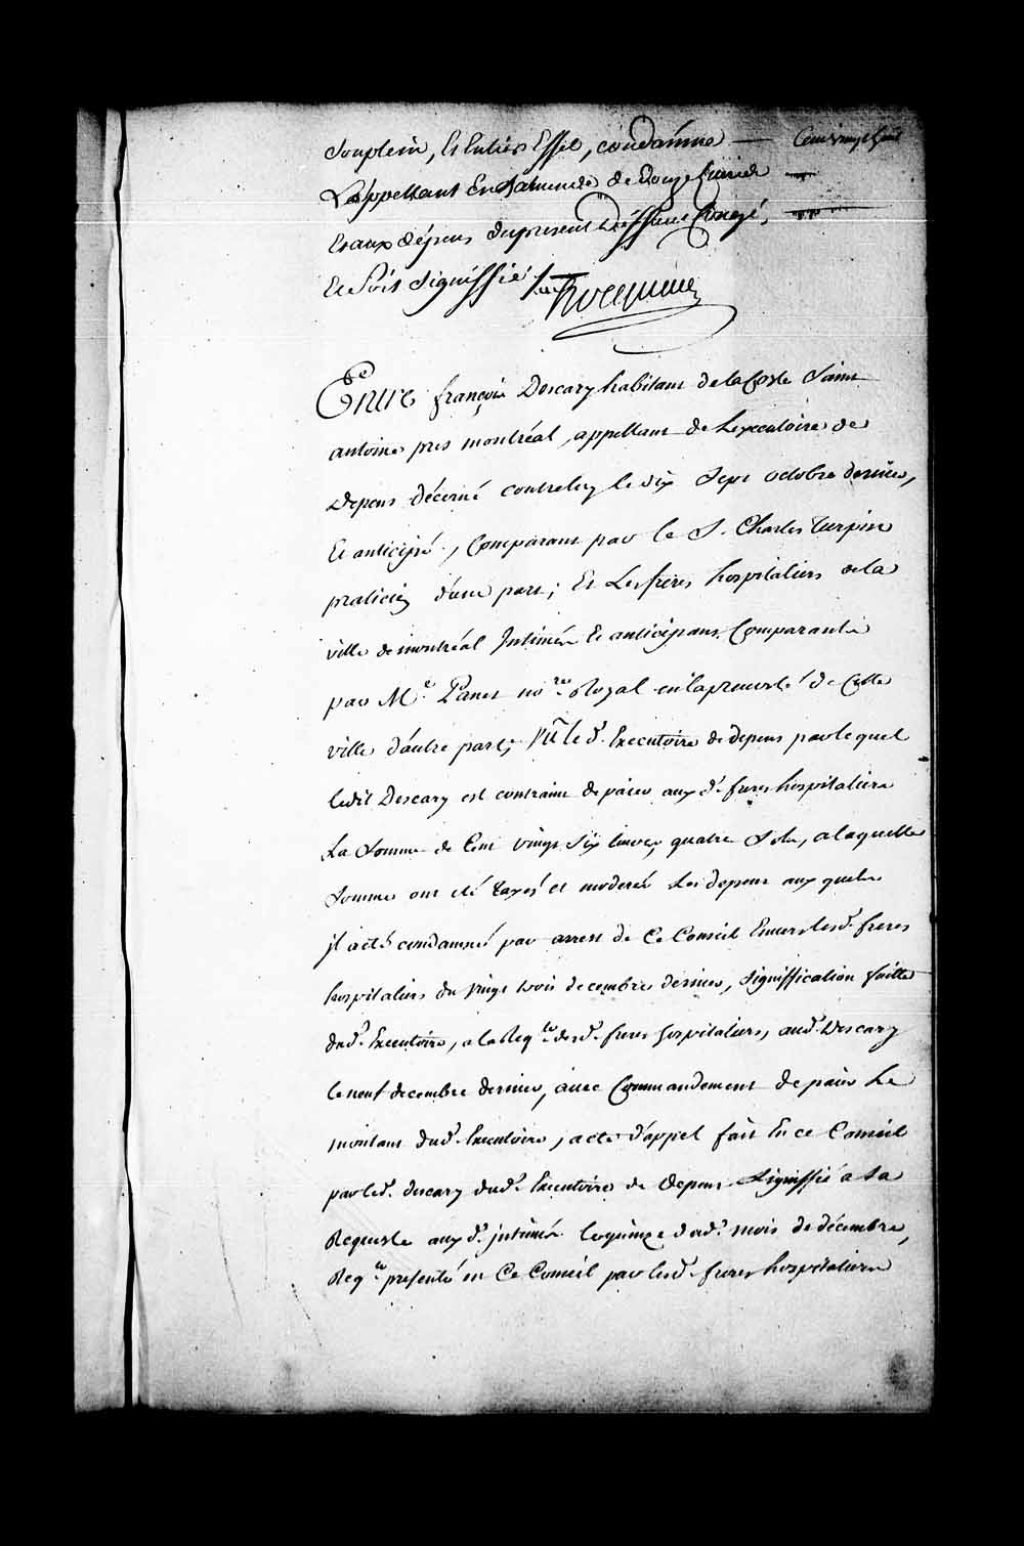 Son plein, Et Entier Effet, condamne
L'appellant En Lamende de Douze Livres
Et aux dépens du present deffaut Congé,
Et Soit Signiffié
Hocquart
Entre françois Descary habitant de la Coste Saint
antoine pres montréal, appellant de Lexecutoire de
Depens décerné contreluy le dix Sept octobre dernier,
Et anticipé, Comparant par le S. Charles Turpin
praticien d'une part; Et Les freres hospitaliers de la
ville de montréal Intimés Et anticipans Comparants
par Me. Panet nore. Royal en la prevosté de Cette
ville d'autre part; Vû le d. Executoire de depens par lequel
ledit Descary est contraint de païer aux d. freres hospitaliers
La Somme de Cent vingt Six livres quatre Sols, a laquelle
Somme ont été taxés et moderés Les depens aux quels
jl a été condamné par arrest de Ce Conseil Envers lesd. freres
hospitaliers du vingt trois decembre dernier, Signiffication faitte
dud. Executoire, a la Reqte. desd. freres hospitaliers, aud. Descary
le neuf decembre dernier, avec Commandement de païer Le
montant dud. Executoire, acte d'appel fait En ce Conseil
par led. descary dud. Executoire de depens Signiffié a Sa
Requeste aux d. jntimés le quinze dud. mois de décembre,
Reqte. presentée en Ce Conseil par lesd. freres hospitaliers